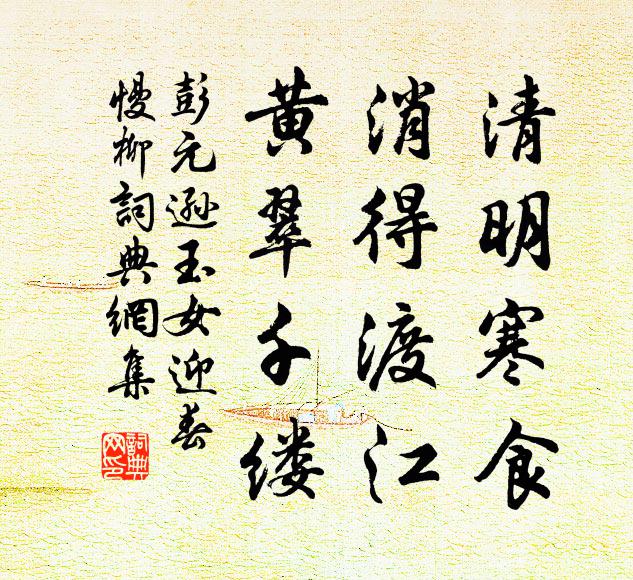 清明寒食
消得渡江
黄翠千缕
彭元遜玉女迎春
慢柳詞典網集
詞典
网印